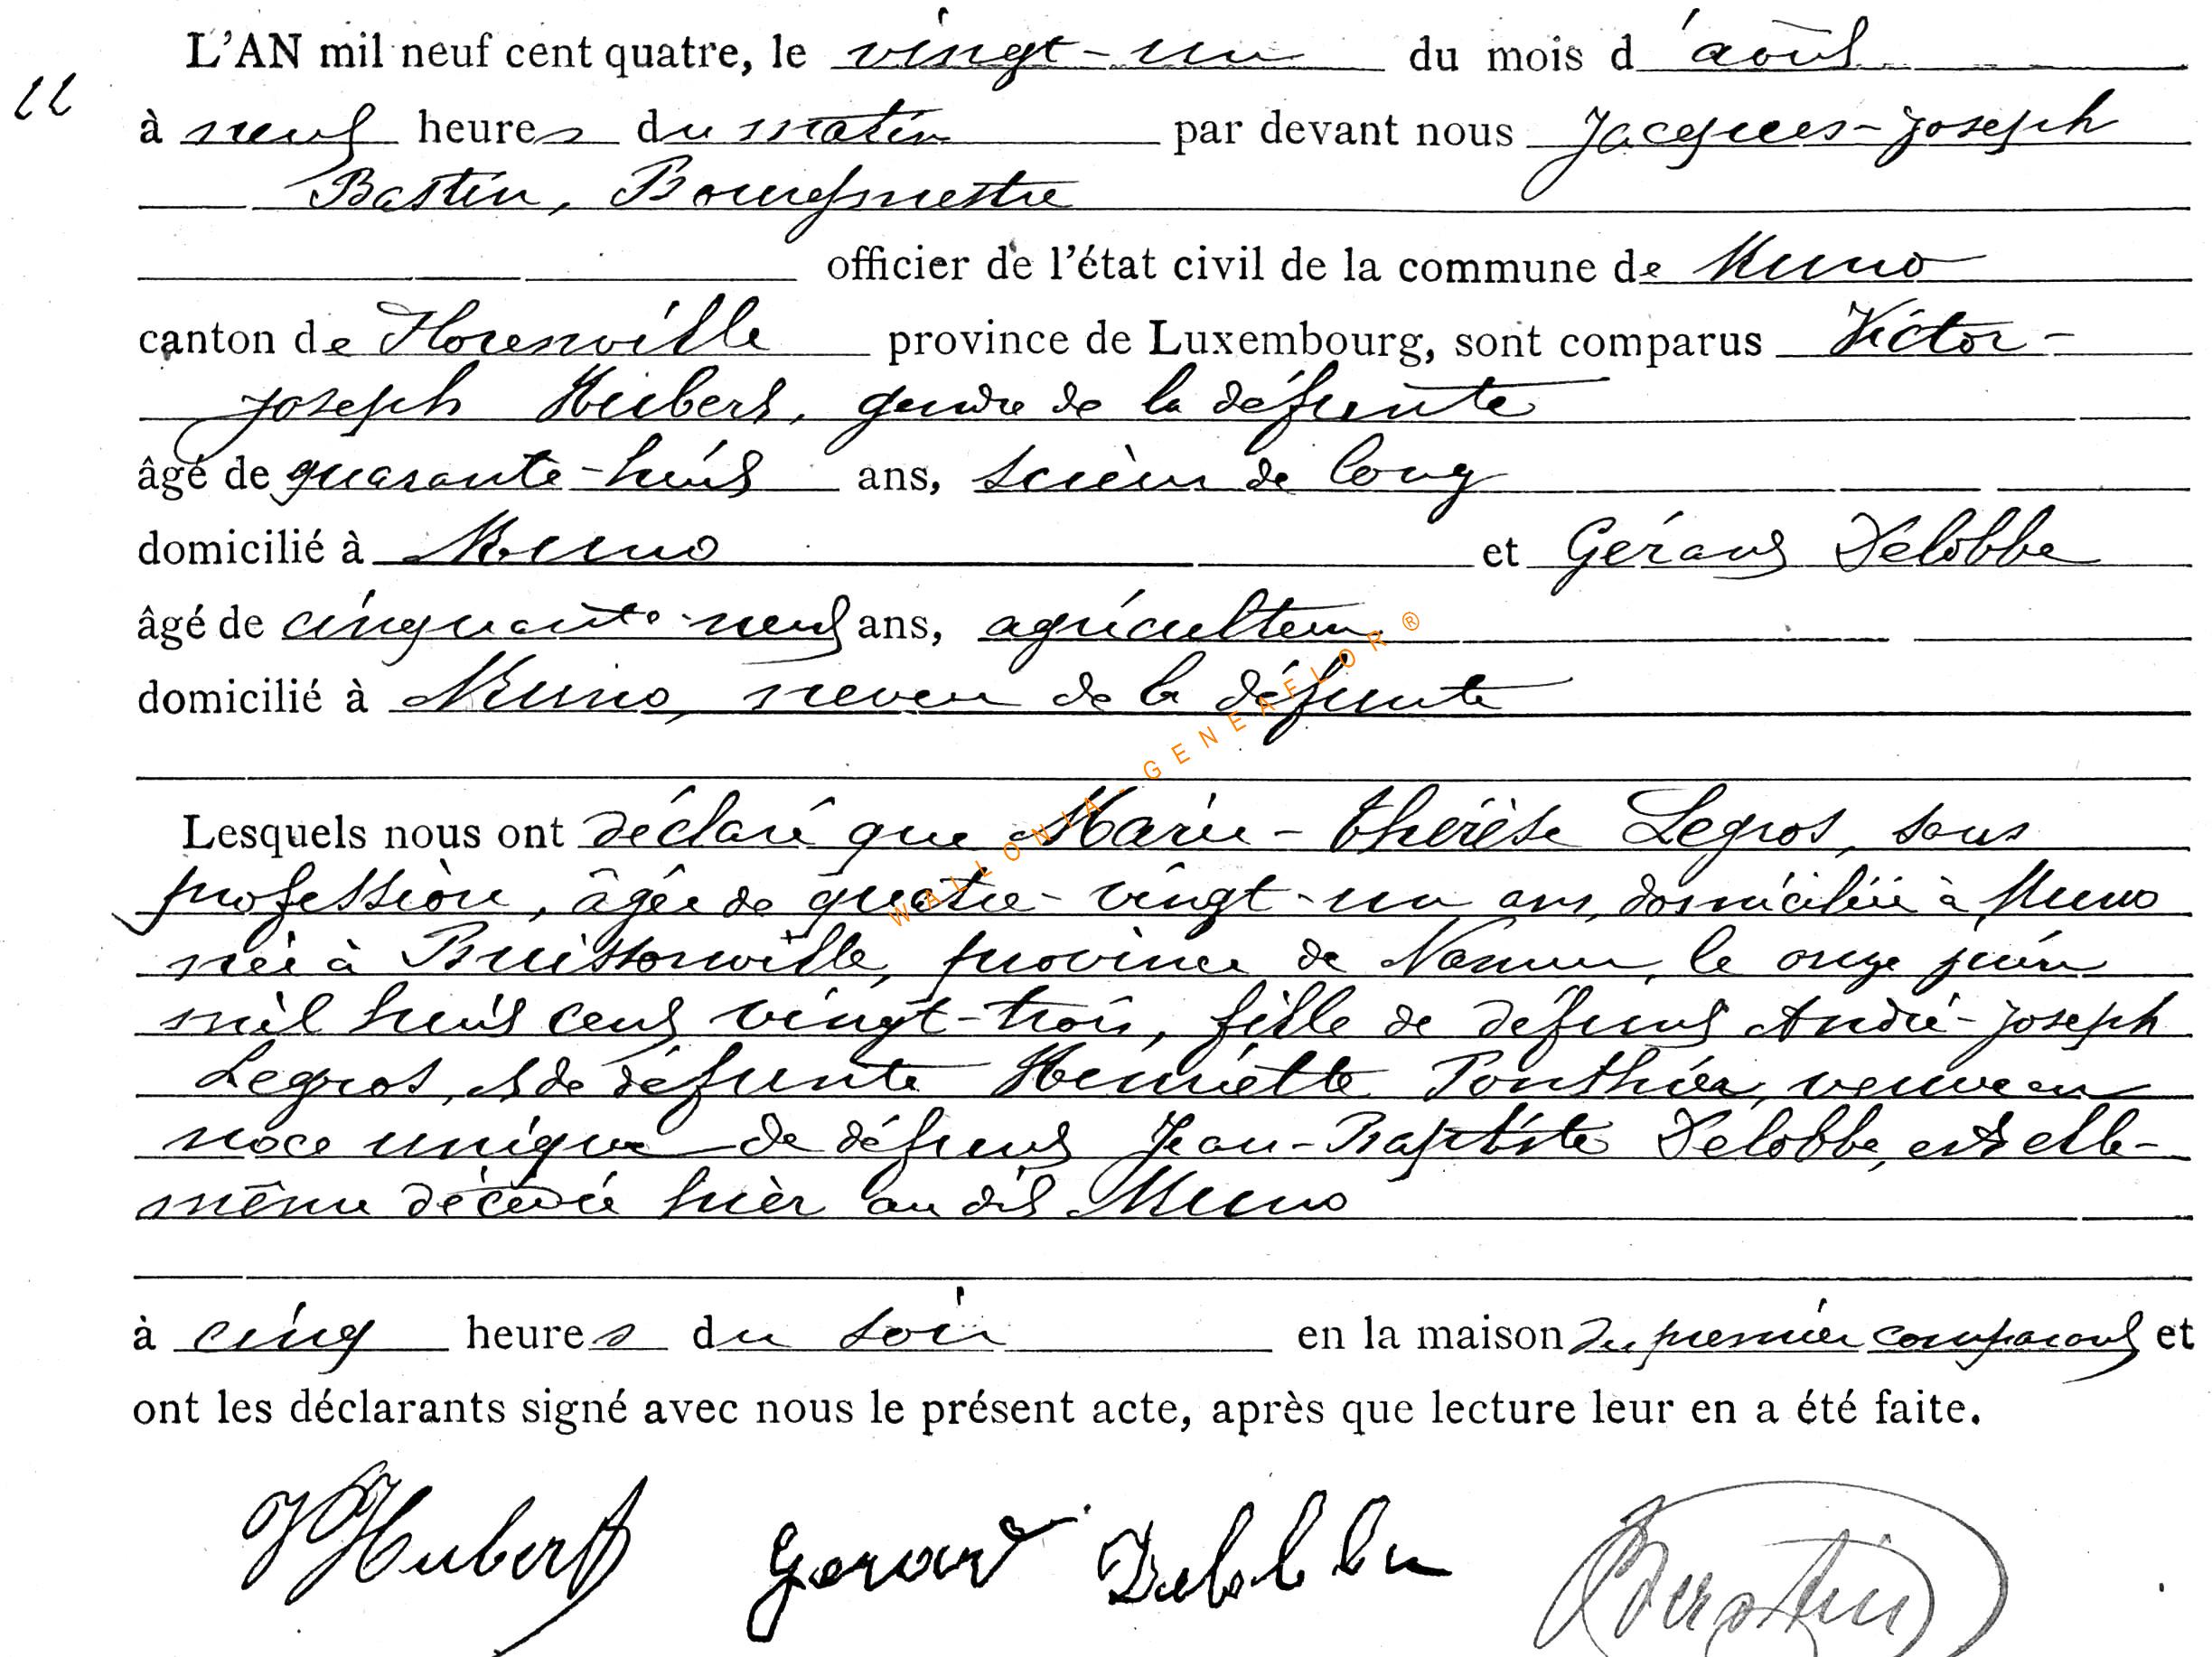 L'AN mil neuf cent quatre, le vingt-un du mois d'août
11
à neuf heures du matin par devant nous Jacques-Joseph
Bastin, Bourgmestre
officier de l'état civil de la commune de Muno
canton de Florenville province de Luxembourg, sont comparus Victor-
Joseph Hubert, gendre de la défunte
âgé de quarante-huit ans, scieur de long
domicilié à Muno et Gérard Delobbe
âgé de cinquante-neuf ans, agriculteur
domicilié à Muno, neveu de la défunte
WALLONIA-GENEAFLOR®
Lesquels nous ont déclaré que Marie-Thérèse Legros, sans
profession, âgée de quatre-vingt-un ans, domiciliée à Muno
née à Buissonville, province de Namur, le onze juin
mil huit cent vingt-trois, fille de défunt André-Joseph
Legros, et de défunte Henriette Ponthier, veuve en
noce unique de défunt Jean-Baptiste Delobbe, est elle-
même décédée hier au dit Muno
à cinq heures du soir en la maison du premier comparant et
ont les déclarants signé avec nous le présent acte, après que lecture leur en a été faite.
VHubert Gerard Delobbe Bastin